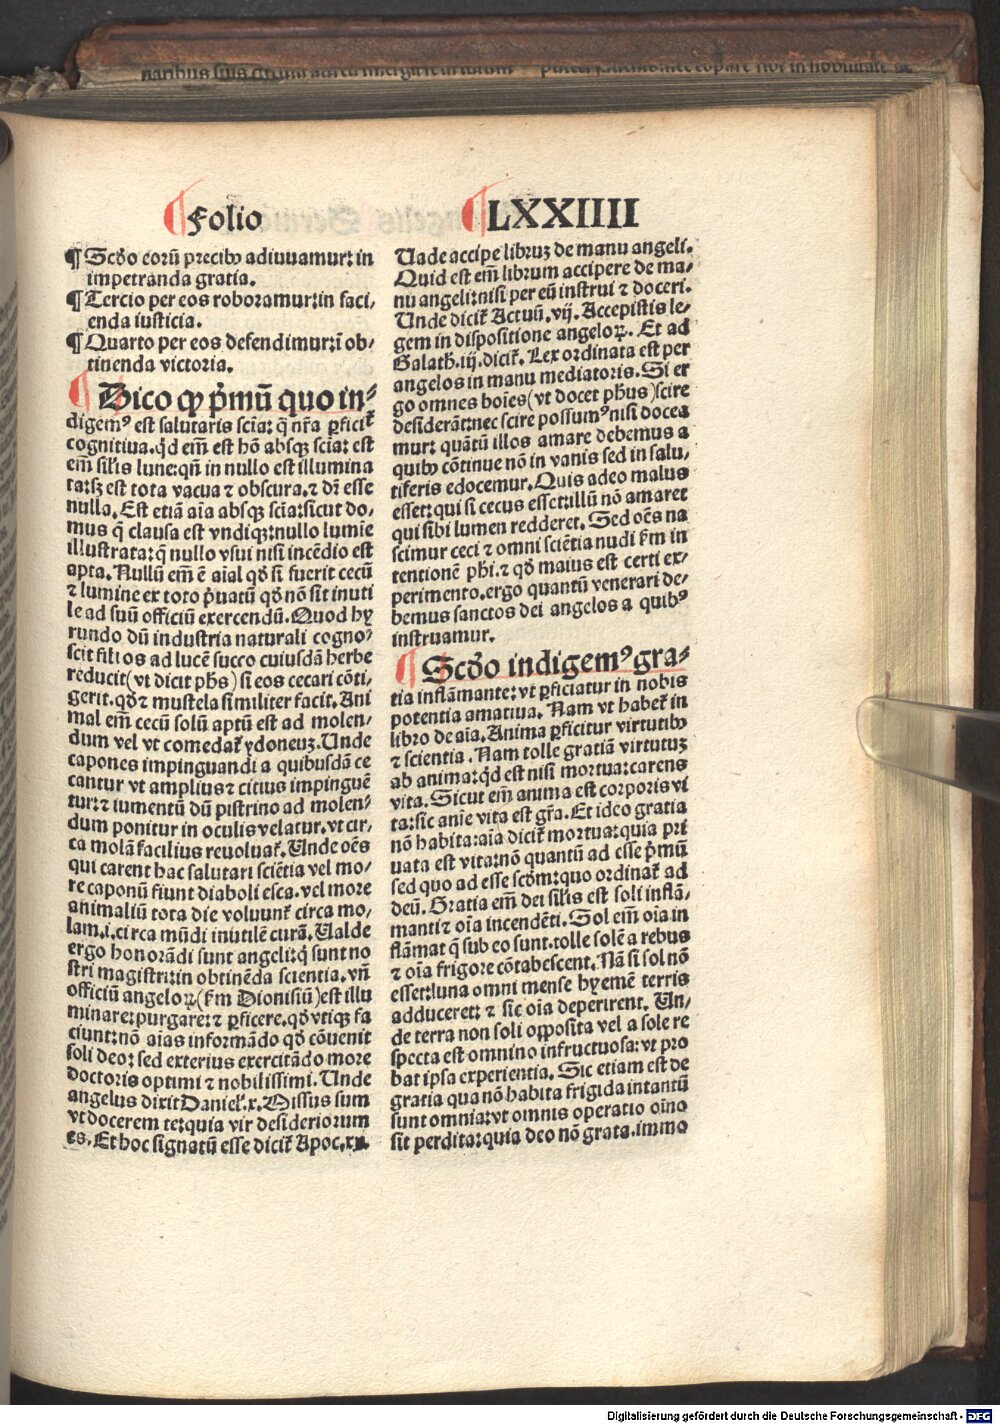 ¶ Folio ¶ LXXIIII
¶ Scḋo eorū precibꝰ adiuuamur: in
impetranda gratia.
¶ Tercio per eos roboramur: in faci/
enda iusticia.
¶ Quarto per eos defendimur: ī ob/
tinenda victoria.
¶ Dico ꝙ p̄mū quo in⸗
digemꝰ est salutaris scīa: q̄ nr̄a ꝑficit̄
cognitiua. qd̄ em̄ est hō absqꝫ scīa: est
em̄ sil̄is lune: qn̄ in nullo est illumina
ta: sꝫ est tota vacua ⁊ obscura. ⁊ dr̄ esse
nulla. Est etiā aīa absqꝫ scīa: sicut do/
mus q̄ clausa est vndiqꝫ: nullo lumīe
illustrata: q̄ nullo vsui nisi incēdio est
apta. Nullū em̄ ē aīal qḋ si fuerit cecū
⁊ lumine ex toto p̄uatū qḋ nō sit inuti
le ad suū officiū exercendū. Quod hy
rundo dū industria naturali cogno⸗
scit filios ad lucē succo cuiusdā herbe
reducit (vt dicit ph̄s) si eos cecari cōti⸗
gerit. qḋ ⁊ mustela similiter facit. Ani
mal em̄ cecū solū aptū est ad molen/
dum vel vt comedat̄ ydoneuꝫ. Unde
capones impinguandi a quibusdā ce
cantur vt amplius ⁊ citius impinguē
tur: ⁊ iumentū dū pistrino ad molen⸗
dum ponitur in oculis velatur. vt cir/
ca molā facilius reuoluat̄. Unde oēs
qui carent hac salutari sciētia vel mo/
re caponū fiunt diaboli esca. vel more
animaliū tota die voluunt̄ circa mo/
lam .i. circa mūdi inutilē curā. Ualde
ergo honorādi sunt angeli: q̄ sunt no
stri magistri: in obtinēda scientia. vn̄
officiū angeloꝝ (ẜm Dionisiū) est illu
minare: purgare: ⁊ ꝑficere. qḋ vtiqꝫ fa
ciunt: nō aīas informādo qḋ cōuenit
soli deo: sed exterius exercitādo more
doctoris optimi ⁊ nobilissimi. Unde
angelus dixit Daniel̄. x. Missus sum
vt docerem te: quia vir desideriorum
es. Et hoc signatū esse dicit̄ Apoc. x.
Uade accipe libruꝫ de manu angeli.
Quid est em̄ librum accipere de ma/
nu angeli: nisi per eū instrui ⁊ doceri.
Unde dicit̄ Actuū. vij. Accepistis le/
gem in dispositione angeloꝝ. Et ad
Galath. iij. dicit̄. Lex ordinata est per
angelos in manu mediatoris. Si er
go omnes hoīes (vt docet ph̄us) scire
desiderāt: nec scire possumꝰ nisi docea
mur: quātū illos amare debemus a
quibꝰ cōtinue nō in vanis sed in salu/
tiferis edocemur. Quis adeo malus
esset: qui si cecus esset: illū nō amaret
qui sibi lumen redderet. Sed oēs na
scimur ceci ⁊ omni sciētia nudi ẜm in
tentionē ph̄i. ⁊ qḋ maius est certi ex/
perimento. ergo quantū venerari de/
bemus sanctos dei angelos a quibꝰ
instruamur.
¶ Scḋo indigemꝰ gra⸗
tia inflāmante: vt ꝑficiatur in nobis
potentia amatiua. Nam vt habet̄ in
libro de aīa. Anima ꝑficitur virtutibꝰ
⁊ scientia. Nam tolle gratiā virtutuꝫ
ab anima: qd̄ est nisi mortua: carens
vita. Sicut em̄ anima est corporis vi
ta: sic anīe vita est gr̄a. Et ideo gratia
nō habita: aīa dicit̄ mortua: quia pri
uata est vita: nō quantū ad esse p̄mū
sed quo ad esse scḋm: quo ordinat̄ ad
deū. Gratia em̄ dei sil̄is est soli inflā/
manti ⁊ oīa incendēti. Sol em̄ oīa in
flāmat q̄ sub eo sunt. tolle solē a rebus
⁊ oīa frigore cōtabescent. Nā si sol nō
esset: luna omni mense hyemē terris
adduceret: ⁊ sic oīa deperirent. Un/
de terra non soli opposita vel a sole re
specta est omnino infructuosa: vt pro
bat ipsa experientia. Sic etiam est de
gratia qua nō habita frigida intantū
sunt omnia: vt omnis operatio oīno
sit perdita: quia deo nō grata. immo
Digitalisierung gefördert durch die Deutsche Forschungsgemeinschaft - DFG